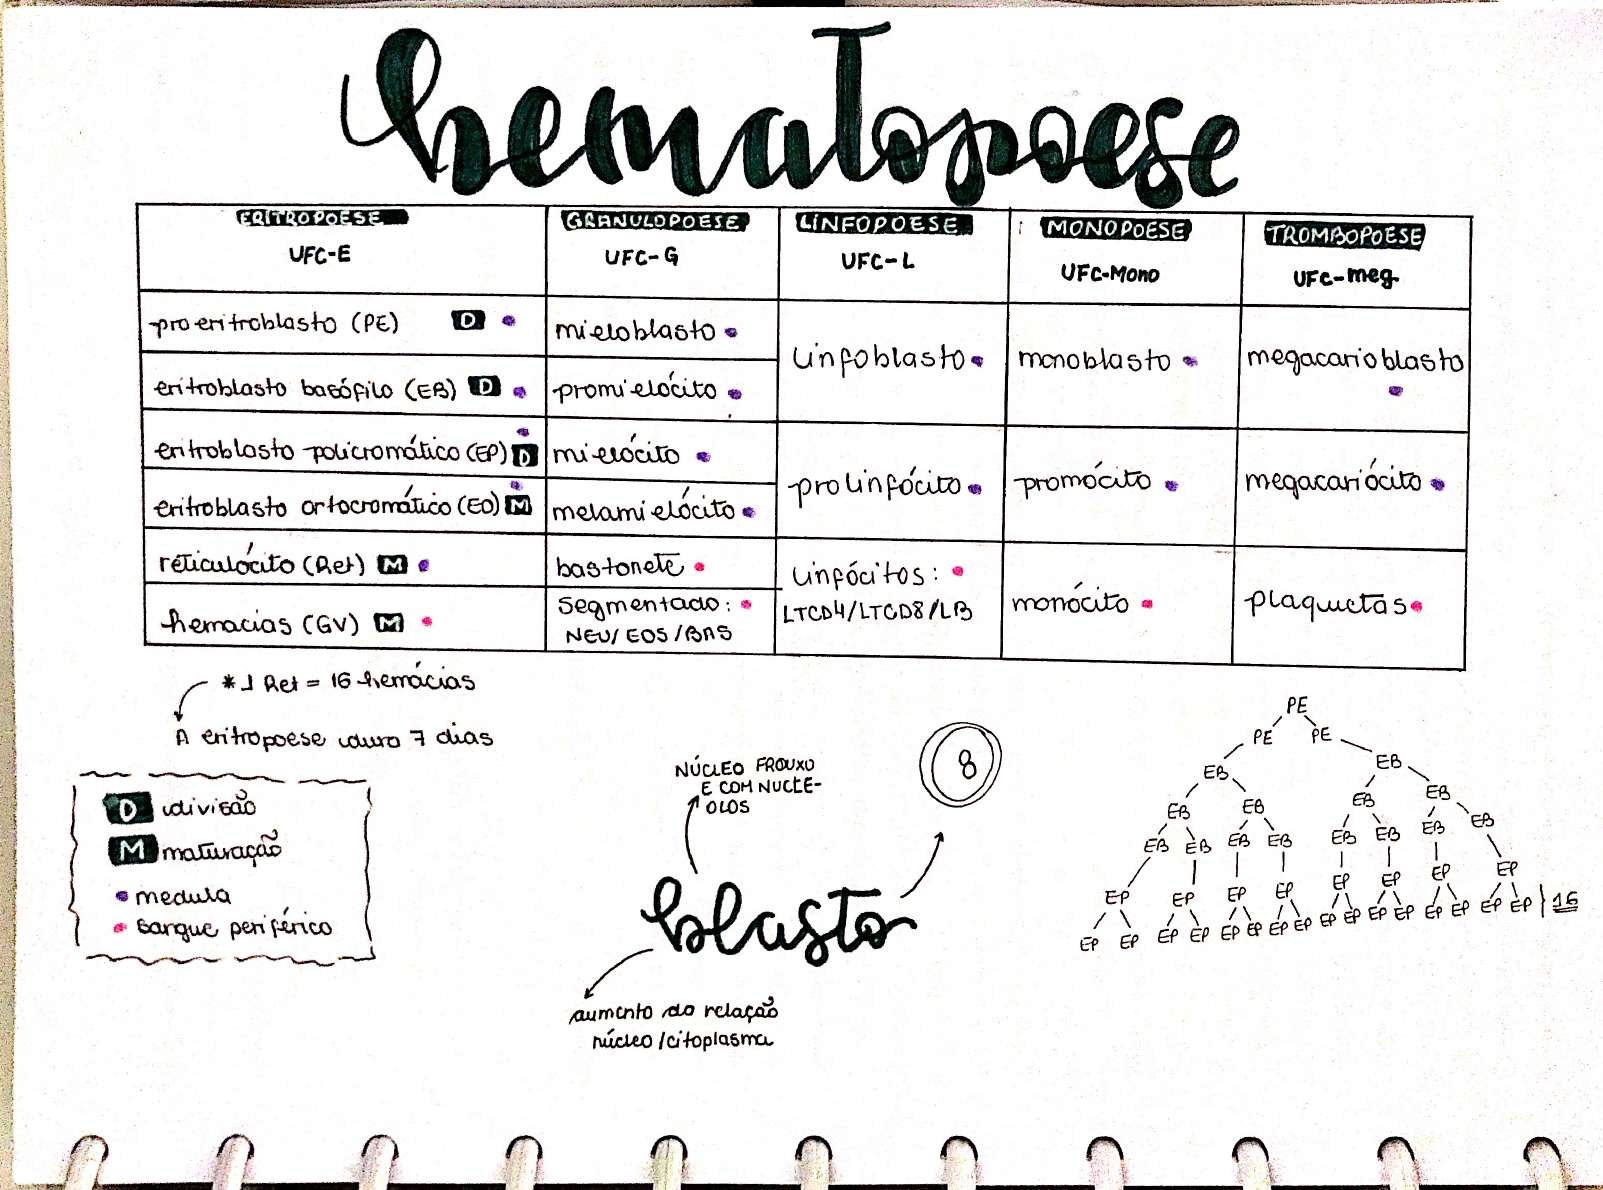 hematopoese
ERITROPOESE
UFC-E
GRANULOPOESE
UFC-G
LINFOPOESE
UFC-L
MONOPOESE
UFC-Mono
TROMBOPOESE
UFC-meg
proeritroblasto (PE) D
eritroblasto basófilo (EB) D
eritroblasto policromático (EP) D
eritroblasto ortocromático (EO) M
reticulócito (Ret) M
hemacias (GV) M
mieloblasto
promielócito
mielócito
melamielócito
bastonete
segmentado:
NEU/EOS/BAS
linfoblasto
prolinfócito
linfócitos:
LTCD4/LTCD8/LB
monoblasto
promócito
monócito
megacarioblasto
megacariócito
plaquetas
* 1 Ret = 16 hemácias
A eritropoese dura 7 dias
D divisão
M maturação
medula
sangue periférico
NÚCLEO FROUXO
E COM NUCLÉ-
OLOS
8
blasto
aumento da relação
núcleo/citoplasma
PE
PE PE
EB EB
EB EB EB EB
EB EB EB EB EB EB EB EB
EP EP EP EP EP EP EP EP
EP EP EP EP EP EP EP EP EP EP EP EP EP EP EP EP } 16